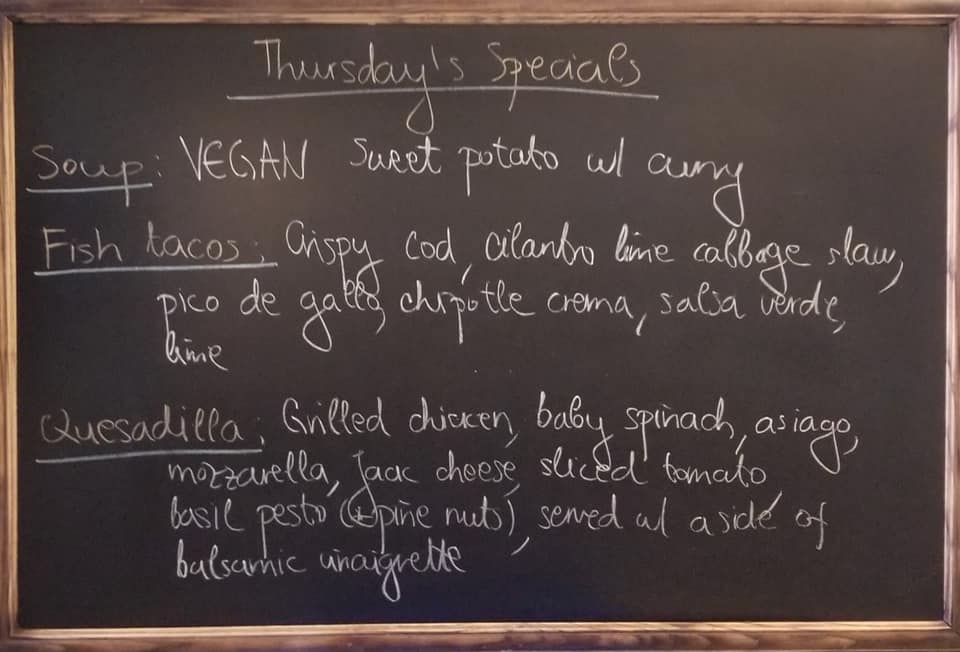 Thursday's Specials
Soup: VEGAN Sweet potato w/ curry
Fish tacos: Crispy cod, cilantro lime cabbage slaw,
pico de gallo, chipotle crema, salsa verde,
lime
Quesadilla: Grilled chicken, baby spinach, asiago,
mozzarella, jaac cheese, sliced tomato
basil pesto (+pine nuts), served w/ a side of
balsamic vinaigrette